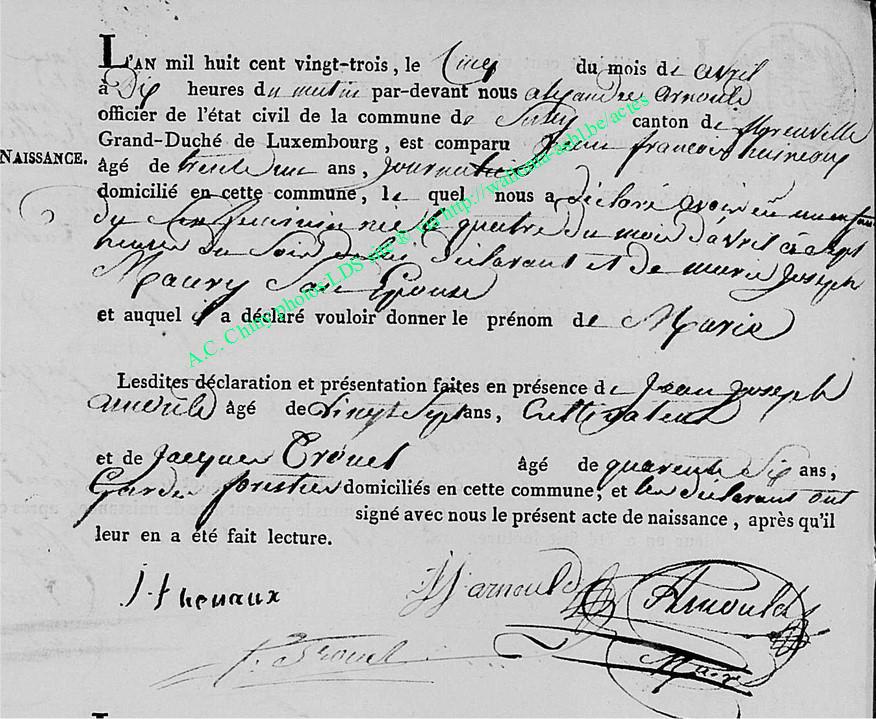 L'AN mil huit cent vingt-trois, le Cinq du mois de avril
à Dix heures du matin par-devant nous alexandre arnould
officier de l'état civil de la commune de canton de florenville
Grand-Duché de Luxembourg, est comparu Jean francois
NAISSANCE.
âgé de trente un ans, Journalier
domicilié en cette commune, le quel nous a déclaré avoir eu un enfant
du Sexe feminin né le quatre du mois d'avril à Sept
heures du Soir de lui déclarant et de marie Joseph
Maury Son Epouse
et auquel il a déclaré vouloir donner le prénom de Marie
Lesdites déclaration et présentation faites en présence de Jean Joseph
arnould âgé de Vingt Sept ans, Cultivateur
et de Jacques Trouet âgé de quarente Six ans,
Garde forestier domiciliés en cette commune; et les déclarant ont
signé avec nous le présent acte de naissance, après qu'il
leur en a été fait lecture.
J f henaux JJ arnould A Arnould
J. Trouet Maire
A.C. Chiny photos LDS http://wallonia-asbl.be/actes